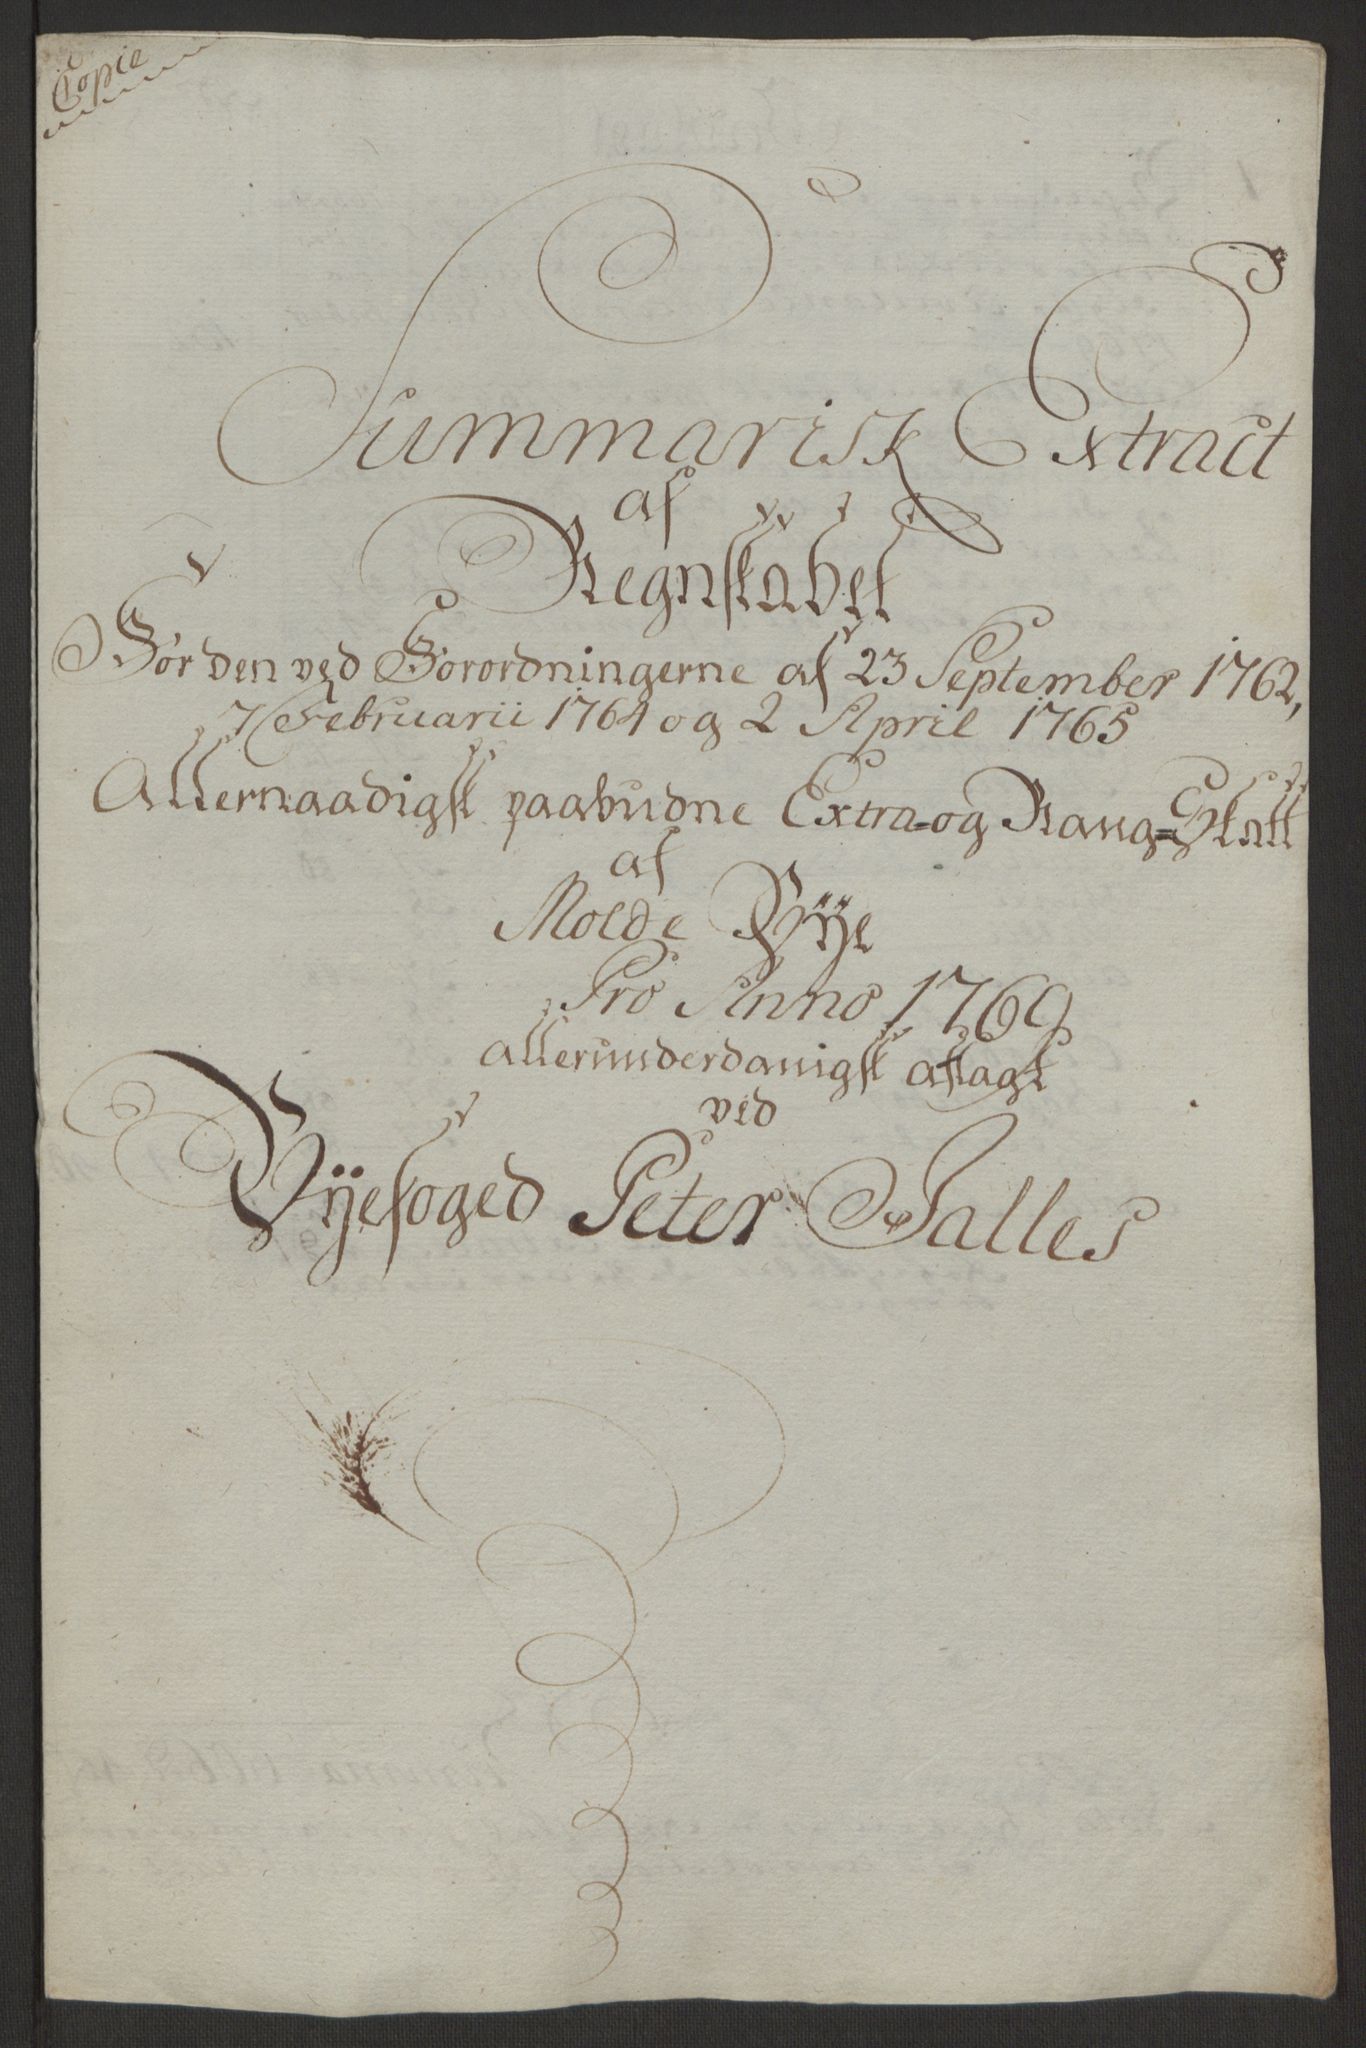 Copie
Summarisk Extract
af
Regnskabet
För den ved Forordningerne af 23 September 1762,
7 Februarii 1764 og 2 April 1765
Allernaadigst paabudne Extra- og Rang=Skatt
af
Molde Bÿe
Pro Anno 1769
allerunderdanigst aflagt
ved
Bÿefoged Peter Dalles